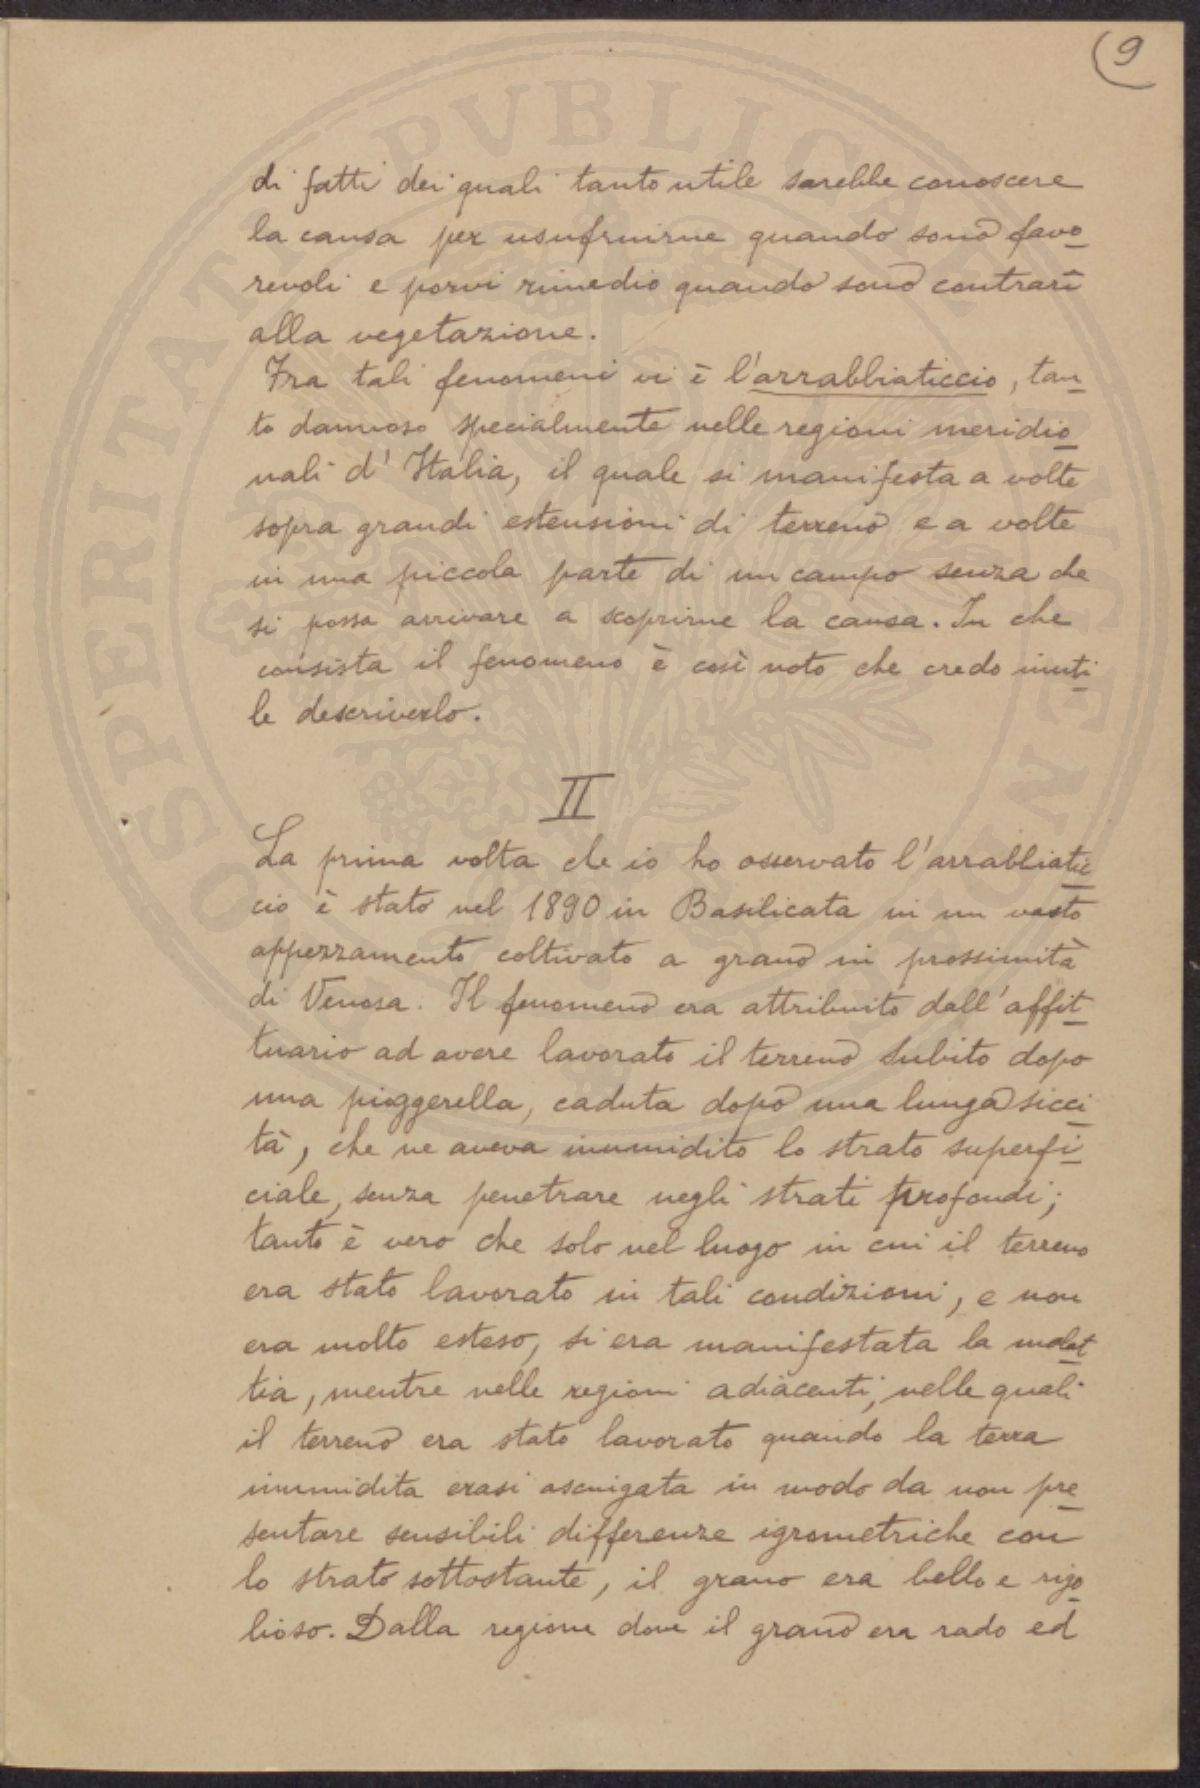 9
di fatti dei quali tanto utile sarebbe conoscere
la causa per usufruirne quando sono favo
revoli e porvi rimedio quando sono contrari
alla vegetazione.
Fra tali fenomeni vi è l'arrabbiaticcio, tan
to dannoso specialmente nelle regioni meridio
nali d'Italia, il quale si manifesta a volte
sopra grandi estensioni di terreno e a volte
in una piccola parte di un campo senza che
si possa arrivare a scoprirne la causa. In che
consista il fenomeno è così noto che credo inuti
le descriverlo.
II
La prima volta che io ho osservato l'arrabbiatic
cio è stato nel 1890 in Basilicata in un vasto
appezzamento coltivato a grano in prossimità
di Venosa. Il fenomeno era attribuito dall'affit
tuario ad avere lavorato il terreno subito dopo
una pioggerella, caduta dopo una lunga sicci
tà, che ne aveva inumidito lo strato superfi
ciale, senza penetrare negli strati profondi;
tanto è vero che solo nel luogo in cui il terreno
era stato lavorato in tali condizioni, e non
era molto esteso, si era manifestata la malat
tia, mentre nelle regioni adiacenti, nelle quali
il terreno era stato lavorato quando la terra
inumidita erasi asciugata in modo da non pre
sentare sensibili differenze igrometriche con
lo strato sottostante, il grano era bello e rigo
lioso. Dalla regione dove il grano era rado ed